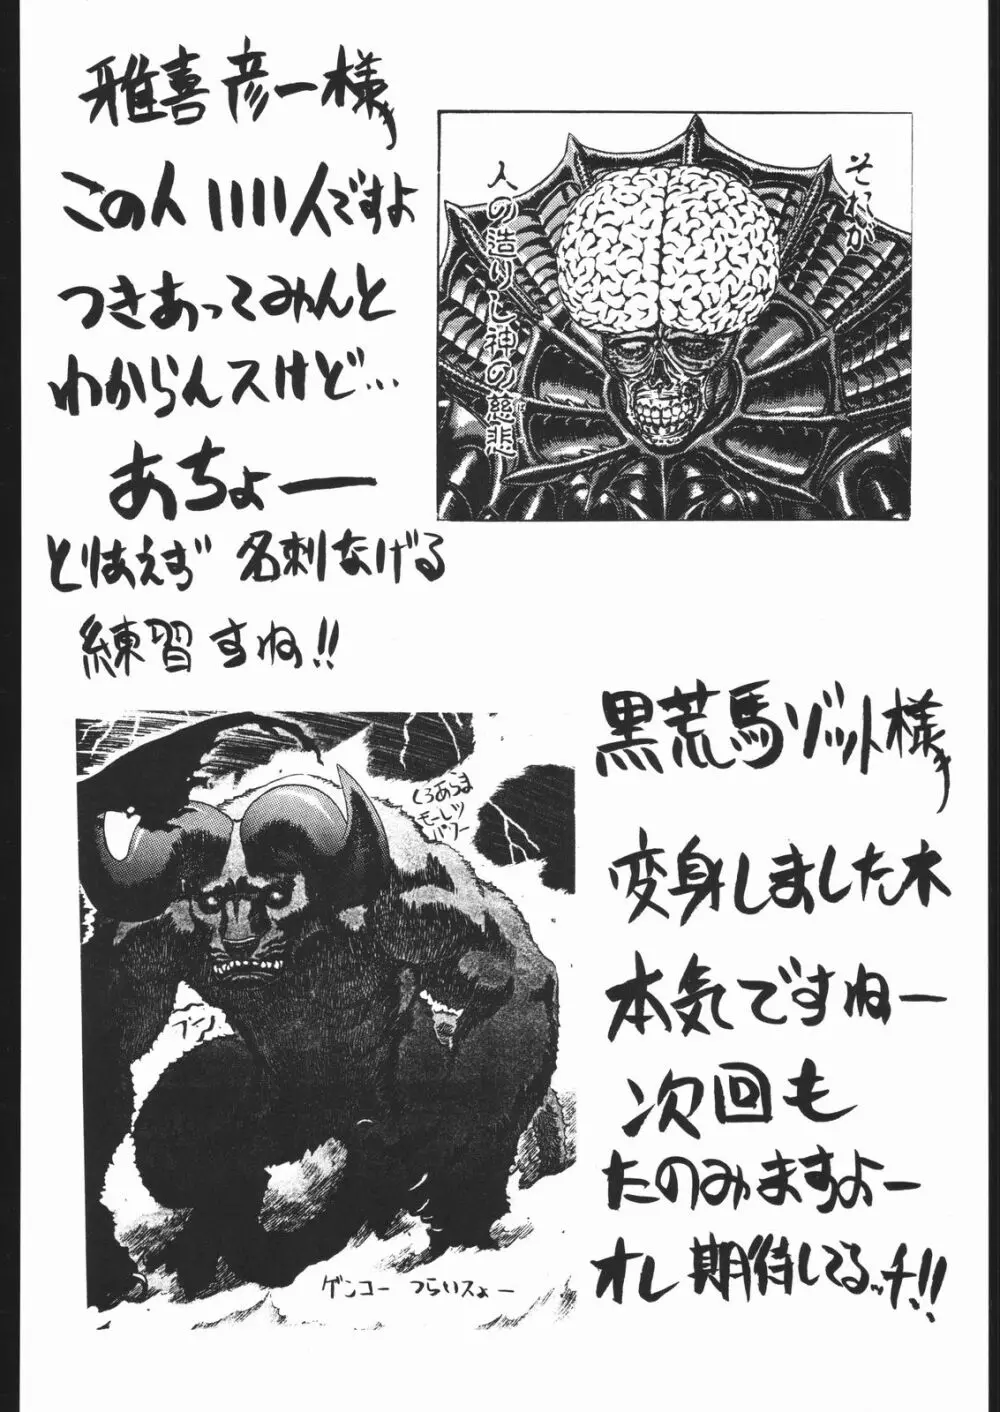 雅喜彦一様
この人いい人ですよ
つきあってみんと
わからんスけど…
あちょー
とりあえず 名刺なげる
練習すね!!
それが
人の造りし神の慈悲
黒荒馬ゾット様
変身しました木
本気ですねー
次回も
たのみますよー
オレ期待してるッチ!!
くろあらま
モーレツ
パワー
ブンッ
ゲンコー つらいスよー